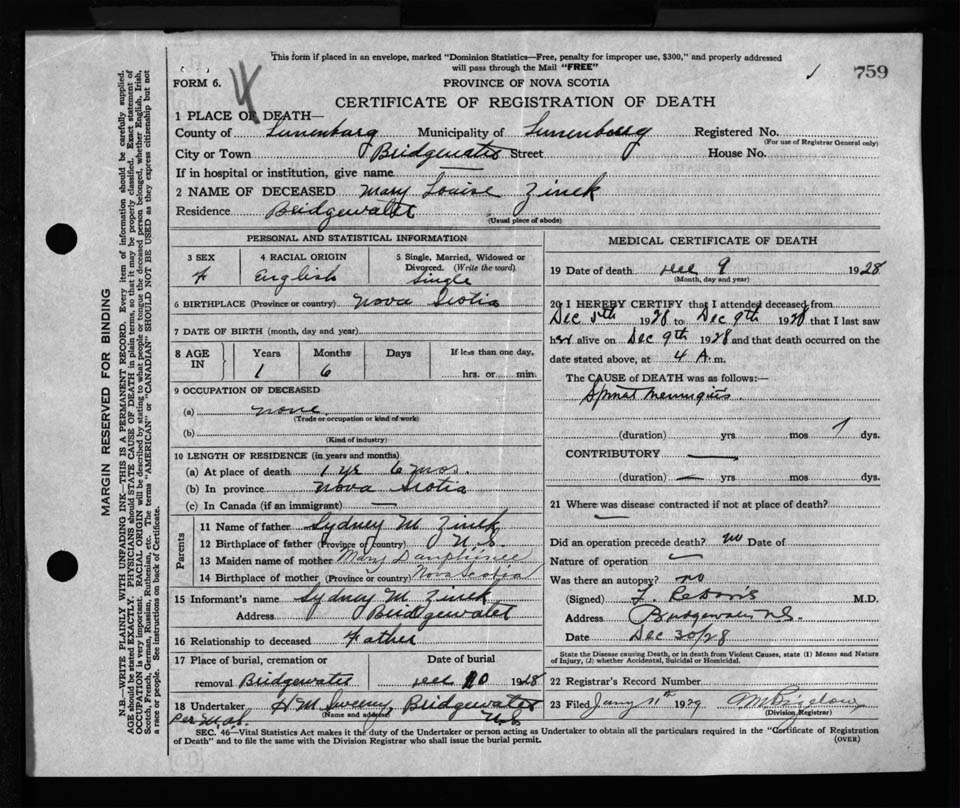 This form if placed in an envelope, marked "Dominion Statistics—Free, penalty for improper use, $300," and properly addressed
will pass through the Mail "FREE"
759
FORM 6.
4
PROVINCE OF NOVA SCOTIA
CERTIFICATE OF REGISTRATION OF DEATH
1 PLACE OF DEATH—
County of Lunenburg Municipality of Lunenburg Registered No.
(For use of Registrar General only)
City or Town Bridgewater Street House No.
If in hospital or institution, give name
2 NAME OF DECEASED Mary Louise Zinck
Residence Bridgewater
(Usual place of abode)
MARGIN RESERVED FOR BINDING
N.B.—WRITE PLAINLY WITH UNFADING INK—THIS IS A PERMANENT RECORD. Every item of information should be carefully supplied.
AGE should be stated EXACTLY. PHYSICIANS should STATE CAUSE OF DEATH in plain terms, so that it may be properly classified. Exact statement of
OCCUPATION is very important. RACIAL ORIGIN will be described by stating to what people or tongue the deceased person belonged, whether English, Irish,
Scotch, French, German, Russian, Ruthenian, etc. The terms "AMERICAN" or "CANADIAN" SHOULD NOT BE USED as they express citizenship but not
a race or people. See instructions on back of Certificate.
PERSONAL AND STATISTICAL INFORMATION
3 SEX 4 RACIAL ORIGIN 5 Single, Married, Widowed or
Divorced. (Write the word)
F English Single
6 BIRTHPLACE (Province or country) Nova Scotia
7 DATE OF BIRTH (month, day and year)
8 AGE IN Years Months Days If less than one day,
1 6 hrs. or min.
9 OCCUPATION OF DECEASED
(a) none
(Trade or occupation or kind of work)
(b)
(Kind of industry)
10 LENGTH OF RESIDENCE (in years and months)
(a) At place of death 1 yr 6 mos.
(b) In province Nova Scotia
(c) In Canada (if an immigrant) —
Parents
11 Name of father Sydney M. Zinck
12 Birthplace of father (Province or country) N.S.
13 Maiden name of mother Mary
14 Birthplace of mother (Province or country) Nova Scotia
15 Informant's name Sydney M. Zinck
Address Bridgewater
16 Relationship to deceased Father
17 Place of burial, cremation or Date of burial
removal Bridgewater Dec 10 1928
18 Undertaker H M Sweeny, Bridgewater
(Name and address)
Per N.S
MEDICAL CERTIFICATE OF DEATH
19 Date of death Dec 9 1928
(Month, day and year)
20 I HEREBY CERTIFY that I attended deceased from
Dec 1928 to Dec 9th 1928 that I last saw
her alive on Dec 9th 1928 and that death occurred on the
date stated above, at 4 A.m.
The CAUSE of DEATH was as follows:—
Spinal meningitis.
(duration) yrs mos 7 dys.
CONTRIBUTORY —
(duration) — yrs. mos. dys.
21 Where was disease contracted if not at place of death?
—
Did an operation precede death? no Date of
Nature of operation
Was there an autopsy? no
(Signed) M.D.
Address Bridgewater N.S.
Date Dec 30/28
State the Disease causing Death, or in death from Violent Causes, state (1) Means and Nature
of Injury, (2) whether Accidental, Suicidal or Homicidal.
22 Registrar's Record Number
23 Filed Jany 11th 1929
(Division Registrar)
SEC. 46—Vital Statistics Act makes it the duty of the Undertaker or person acting as Undertaker to obtain all the particulars required in the "Certificate of Registration
of Death" and to file the same with the Division Registrar who shall issue the burial permit.
(OVER)